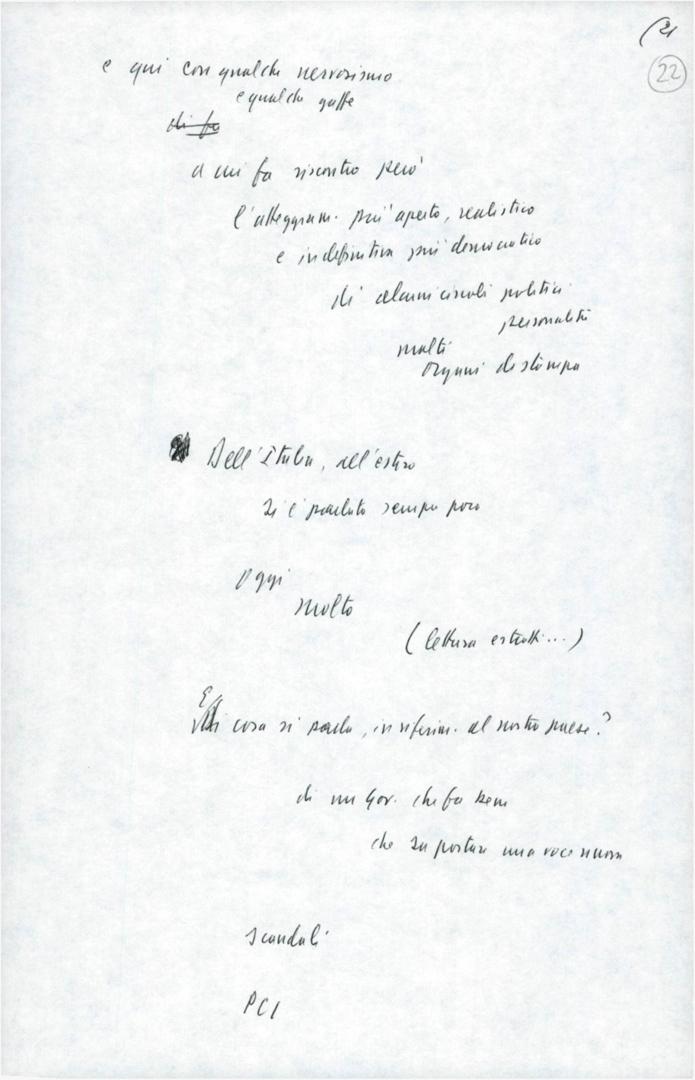 (21
22
e qui con qualche nervosismo
e qualche gaffe
di fa
a cui fa riscontro però
l'atteggiam. più aperto, realistico
e in definitiva più democratico
di alcuni circoli politici
personalità
molti
organi di stampa
Dell'Italia, all'estero
si è parlato sempre poco
oggi
molto
(lettura estratti...)
E di cosa si parla, in riferim. al nostro paese?
di un Gov. che fa bene
che sa portare una voce nuova
scandali
PCI